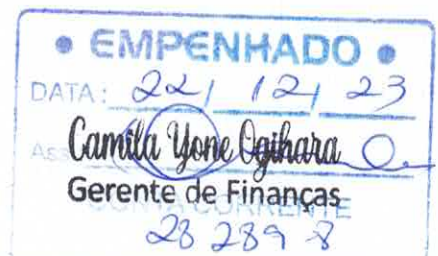 • EMPENHADO •
DATA: 22/ 12/ 23
Camila Yone Ogihara
Gerente de Finanças
CONTA CORRENTE
28 289 8